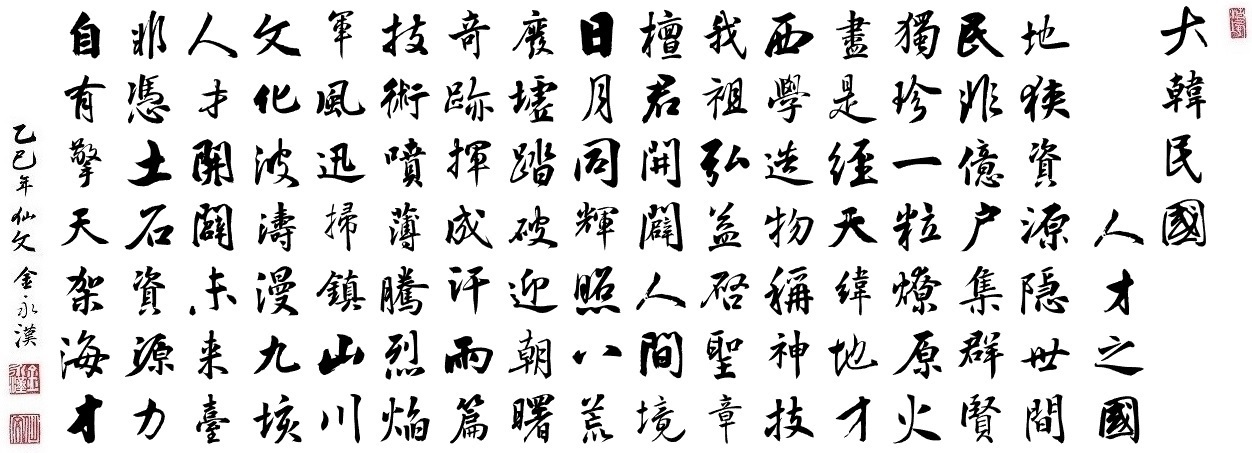 大韓民國
人才之國
地狹資源隐世間
民非億户集群賢
獨珍一粒燎原火
盡是經天緯地才
西學造物稱神技
我祖弘益啓聖章
檀君開闢人間境
日月同輝照八荒
廢墟踏破迎朝曙
奇跡揮成汗雨篇
技術噴薄騰烈焰
軍風迅掃鎮山川
文化波濤漫九垓
人才開闢未来臺
非憑土石資源力
自有擎天架海才
乙巳年仙文金永漢